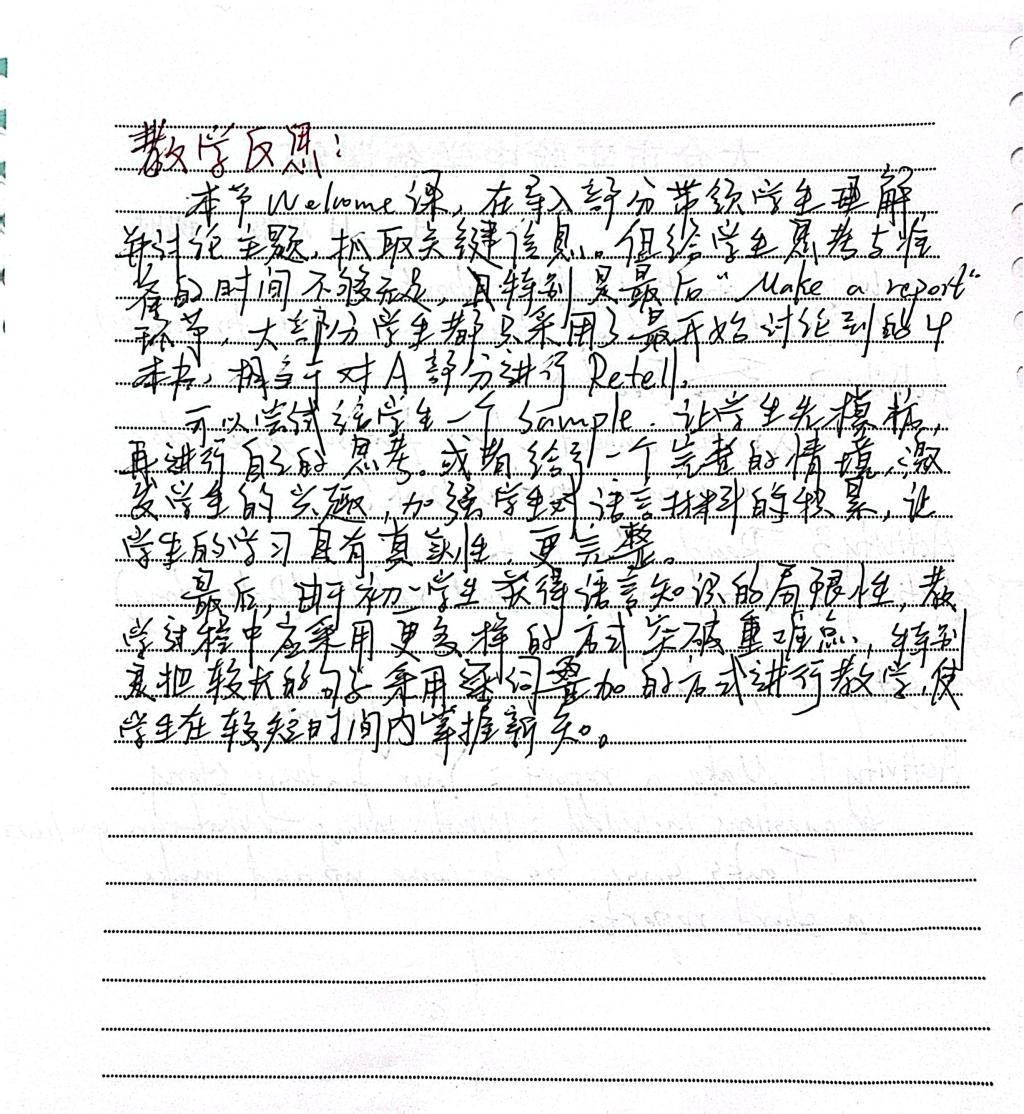 教学反思：
本节Welcome课，在导入部分带领学生理解
并讨论主题，抓取关键信息。但给学生思考与准
备的时间不够充足，且特别是最后“Make a report”
环节，大部分学生都只采用了最开始讨论到的4
本书，相当于对A部分进行Retell.
可以尝试给学生一个Sample. 让学生先模仿，
再进行自己的思考。或者给予一个完整的情境，激
发学生的兴趣，加强学生对语言材料的积累，让
学生的学习具有真实性，更完整。
最后，由于初一学生获得语言知识的局限性，教
学过程中应采用更多样的方式突破重难点，特别
是把较长的句子采用逐词叠加的方式进行教学，使
学生在较短时间内掌握新知。